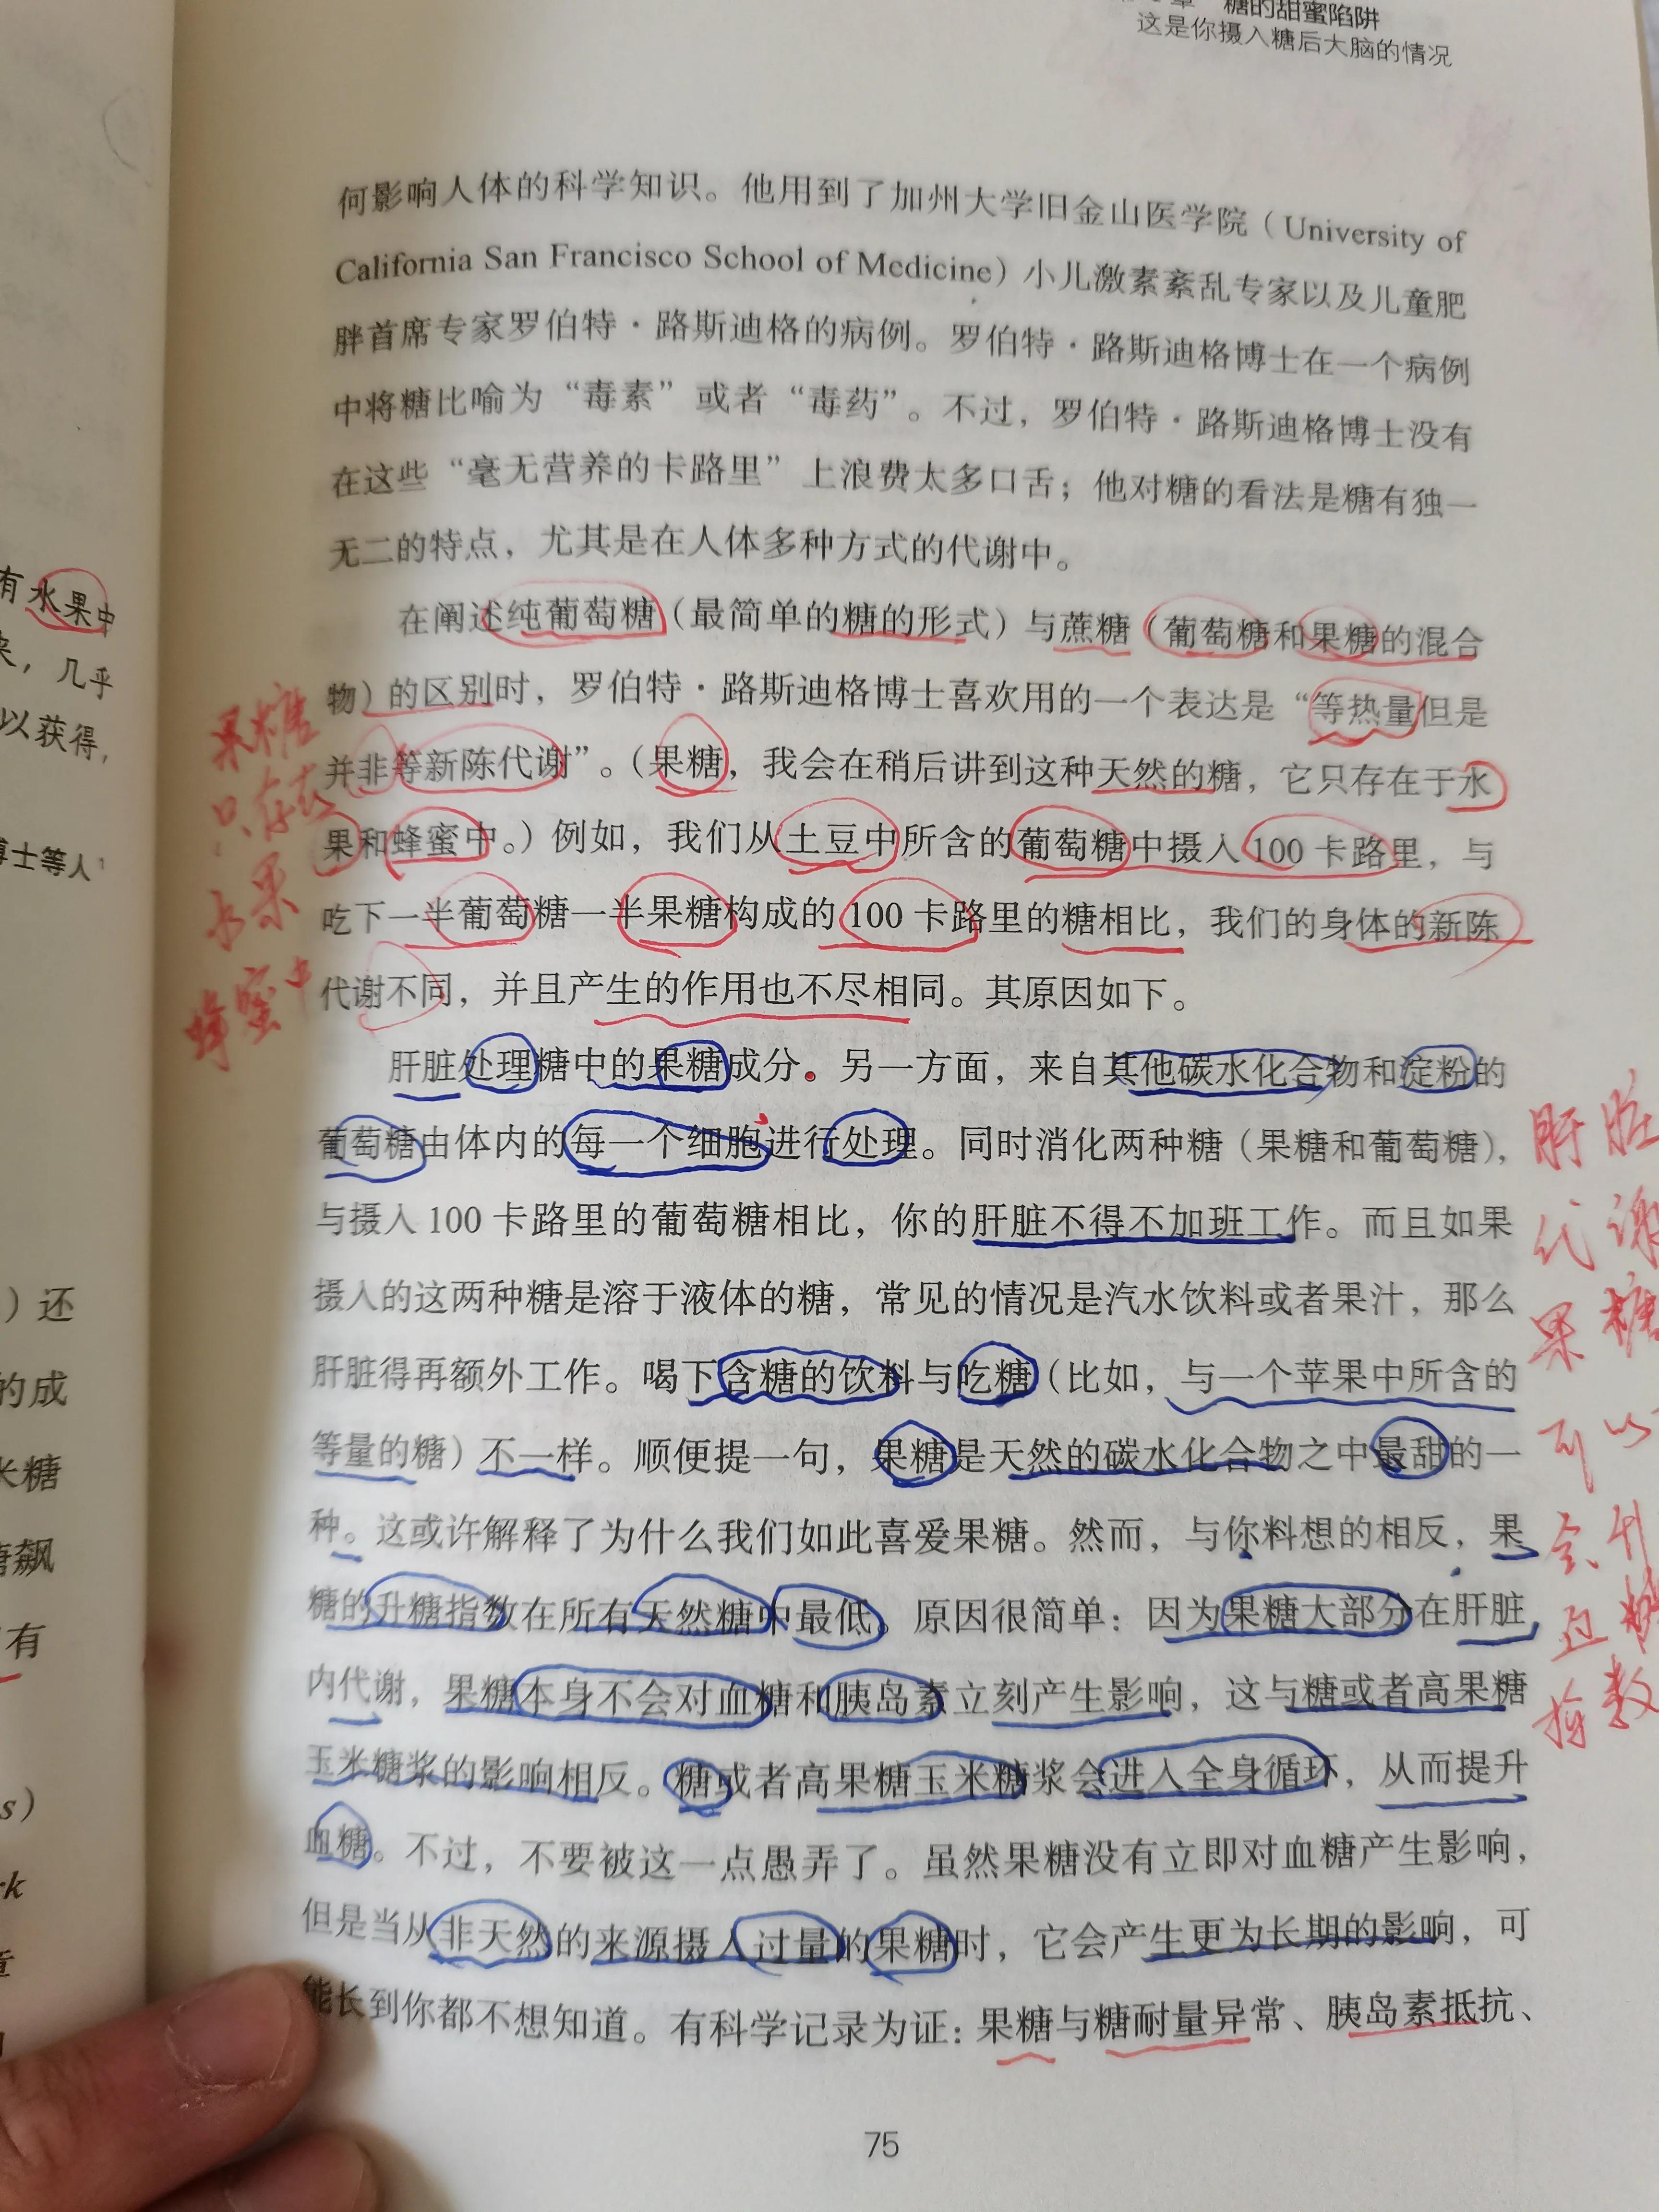 糖的甜蜜陷阱
这是你摄入糖后大脑的情况
何影响人体的科学知识。他用到了加州大学旧金山医学院（University of
California San Francisco School of Medicine）小儿激素紊乱专家以及儿童肥
胖首席专家罗伯特·路斯迪格的病例。罗伯特·路斯迪格博士在一个病例
中将糖比喻为“毒素”或者“毒药”。不过，罗伯特·路斯迪格博士没有
在这些“毫无营养的卡路里”上浪费太多口舌；他对糖的看法是糖有独一
无二的特点，尤其是在人体多种方式的代谢中。
在阐述纯葡萄糖（最简单的糖的形式）与蔗糖（葡萄糖和果糖的混合
物）的区别时，罗伯特·路斯迪格博士喜欢用的一个表达是“等热量但是
并非等新陈代谢”。（果糖，我会在稍后讲到这种天然的糖，它只存在于水
果和蜂蜜中。）例如，我们从土豆中所含的葡萄糖中摄入100卡路里，与
吃下一半葡萄糖一半果糖构成的100卡路里的糖相比，我们的身体的新陈
代谢不同，并且产生的作用也不尽相同。其原因如下。
肝脏处理糖中的果糖成分。另一方面，来自其他碳水化合物和淀粉的
葡萄糖由体内的每一个细胞进行处理。同时消化两种糖（果糖和葡萄糖），
与摄入100卡路里的葡萄糖相比，你的肝脏不得不加班工作。而且如果
摄入的这两种糖是溶于液体的糖，常见的情况是汽水饮料或者果汁，那么
肝脏得再额外工作。喝下含糖的饮料与吃糖（比如，与一个苹果中所含的
等量的糖）不一样。顺便提一句，果糖是天然的碳水化合物之中最甜的一
种。这或许解释了为什么我们如此喜爱果糖。然而，与你料想的相反，果
糖的升糖指数在所有天然糖中最低。原因很简单：因为果糖大部分在肝脏
内代谢，果糖本身不会对血糖和胰岛素立刻产生影响，这与糖或者高果糖
玉米糖浆的影响相反。糖或者高果糖玉米糖浆会进入全身循环，从而提升
血糖。不过，不要被这一点愚弄了。虽然果糖没有立即对血糖产生影响，
但是当从非天然的来源摄入过量的果糖时，它会产生更为长期的影响，可
能长到你都不想知道。有科学记录为证：果糖与糖耐量异常、胰岛素抵抗、
75
果糖
只存在
水果
蜂蜜中
肝脏
代谢
果糖
可以
会升
血糖
指数
有水果中
几乎
以获得，
博士等人
）还
的成
米糖
糖飙
有
s）
rk